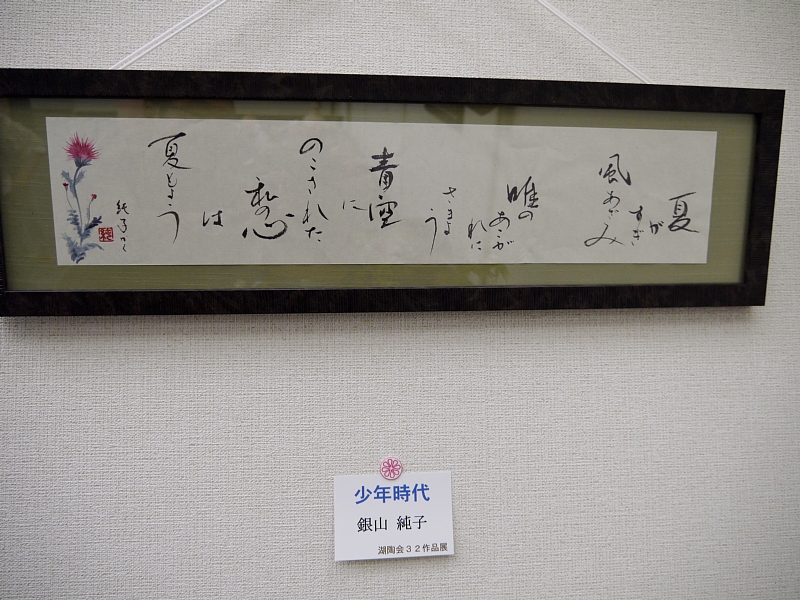 夏
が
すぎ
風あざみ
誰の
あこが
れに
さまよ
う
青空
に
のこされた
私の心
は
夏もよう
純子かく
少年時代
銀山 純子
湖陶会32作品展